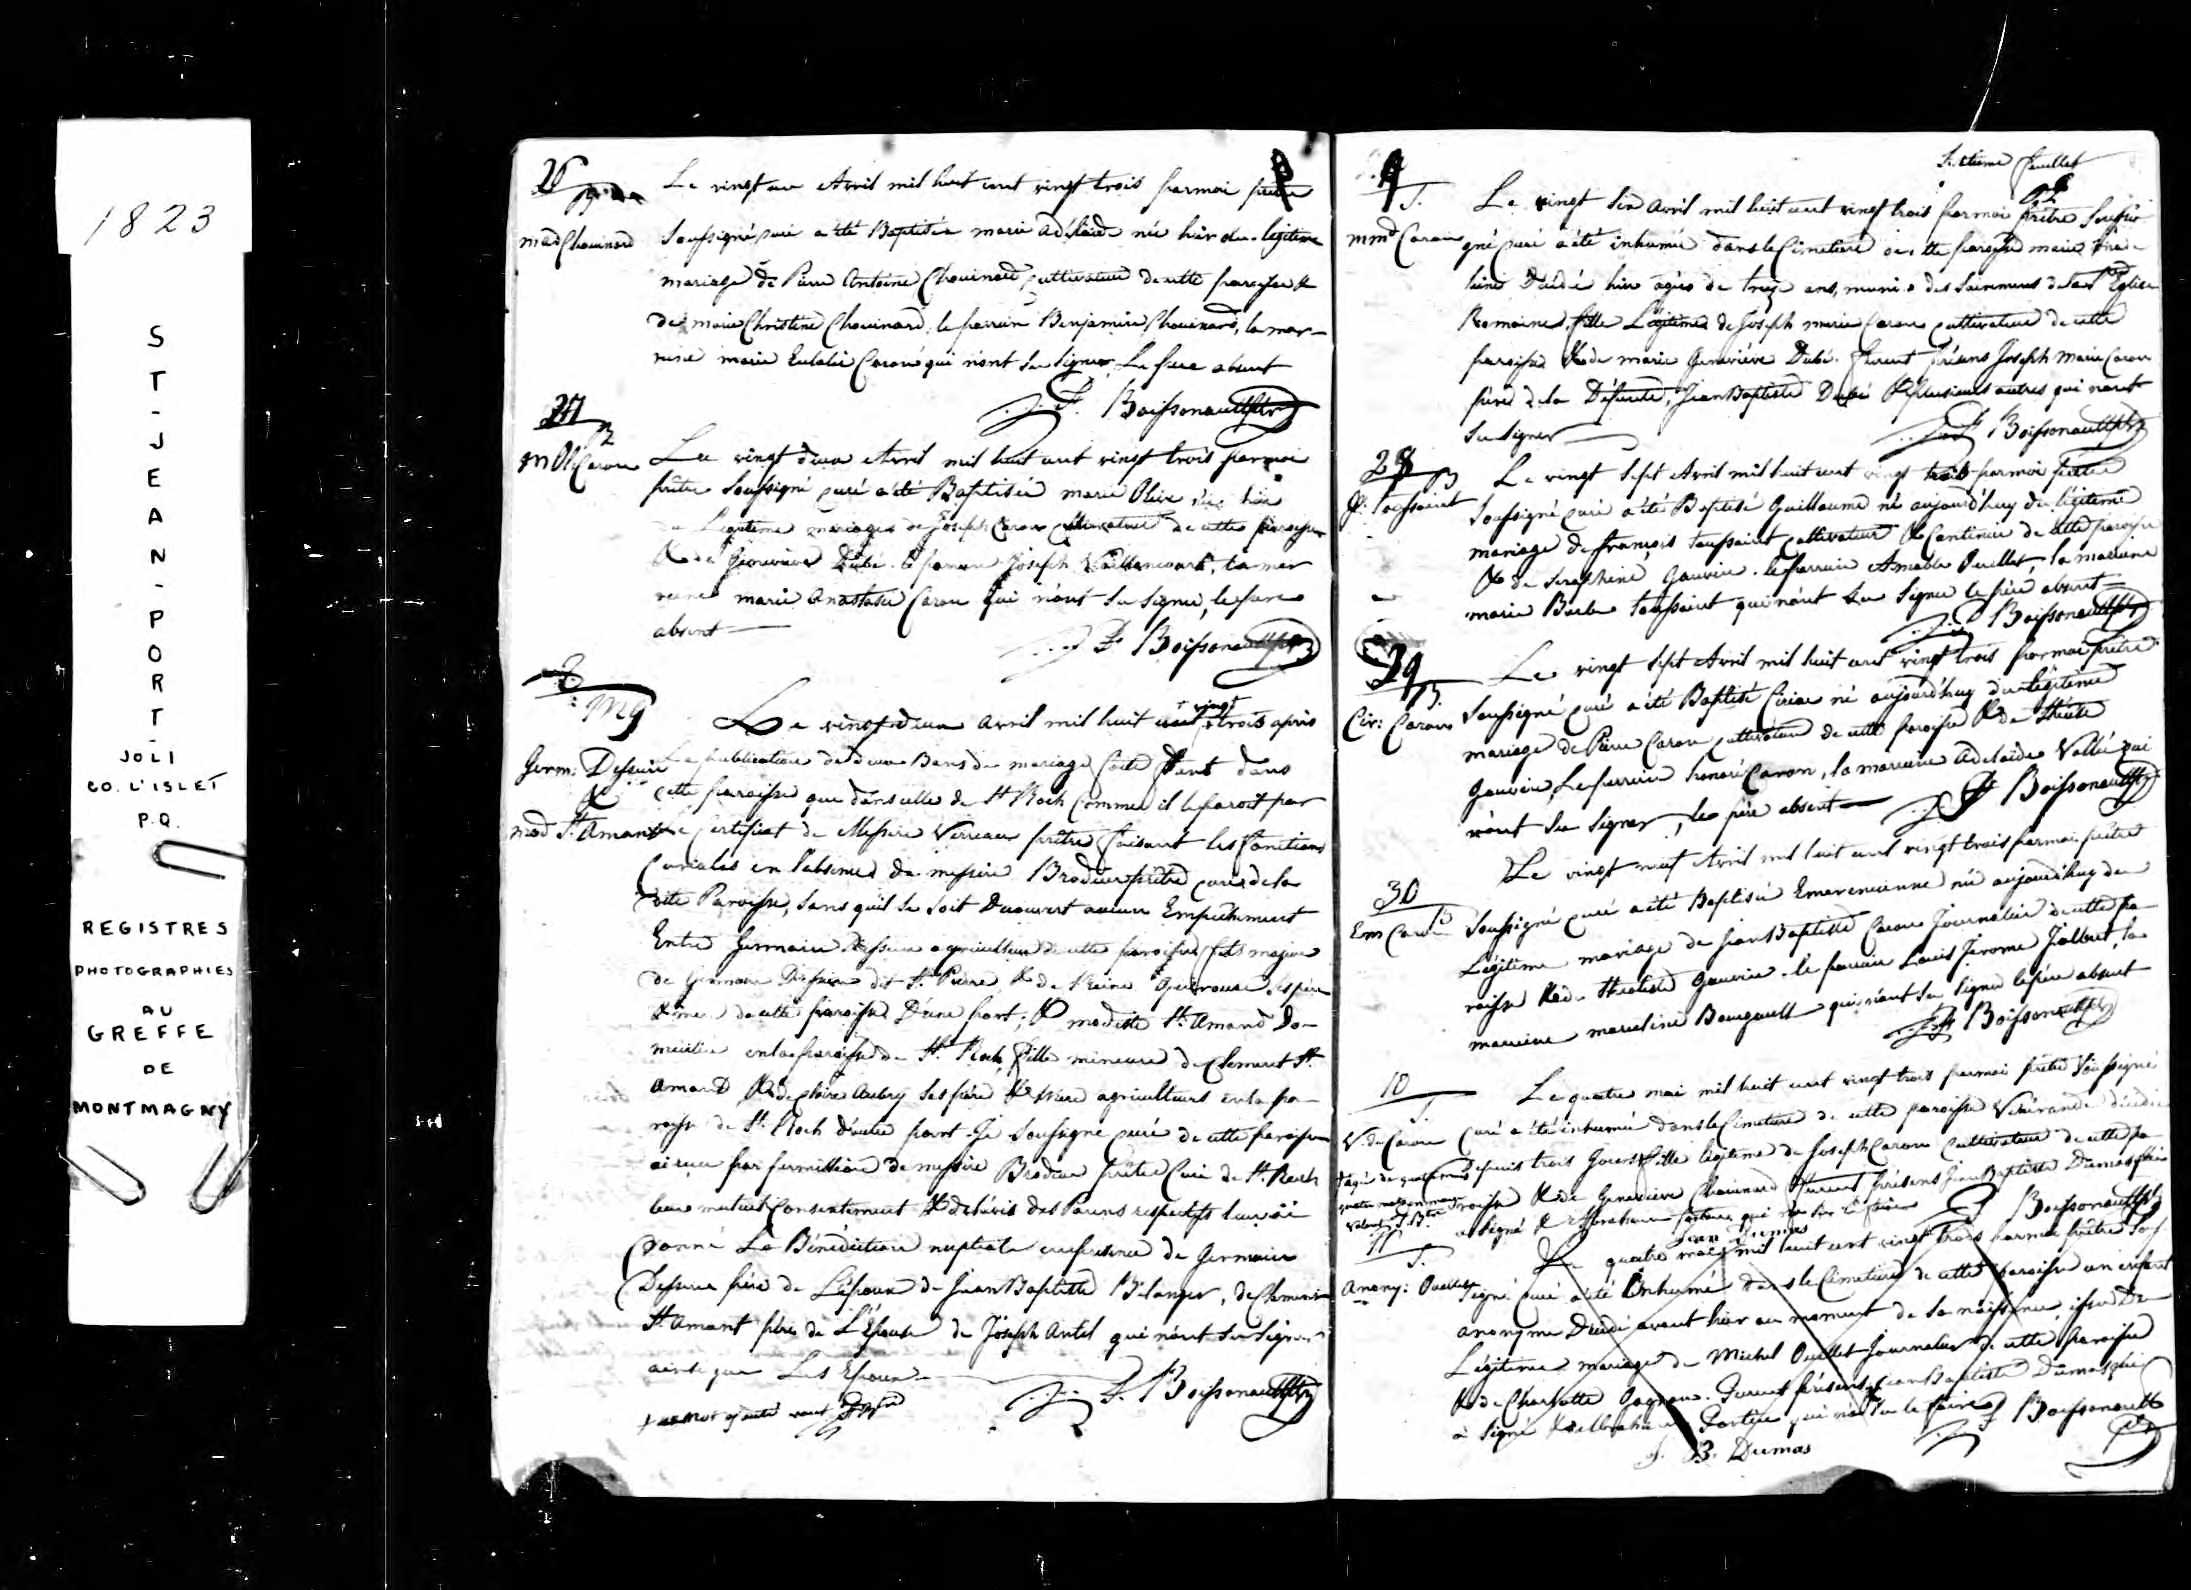 1823
ST-JEAN-PORT-
JOLI
CO. L'ISLET
P.Q.
REGISTRES
PHOTOGRAPHIES
AU
GREFFE
DE
MONTMAGNY
26
B
mad Chouinard
Le vingt un Avril mil huit cent vingt trois par moi prêtre
Soussigné curé a été Baptisée marie Adélaide née hier du légitime
mariage de Pierre Antoine Chouinard cultivateur de cette paroisse &
de marie Christine Chouinard, le parrain Benjamin Chouinard, la mar-
raine marie Eulalie Caron qui n'ont su signer Le père absent
J. F. Boissonault ptre
27
B
m Ol Caron
Le vingt deux Avril mil huit cent vingt trois par moi
prêtre Soussigné curé a été Baptisée marie Olive née hier
du Legitime mariage de Joseph Caron cultivateur de cette paroisse
& de Genevieve Dubé. le parrain Joseph Vaillancourt, la mar
raine marie Anastasie Caron qui n'ont su signer, le père
absent
J. F. Boissonault ptre
3
M
Germ: Dessein
&
mod St. Amant
Le vingt deux Avril mil huit cent + vingt trois après
La publication de deux Bans de mariage faite tant dans
cette paroisse que dans celle de St Roch comme il le paroit par
le Certificat de Messire Verreau prêtre faisant les fonctions
Curiales en l'absence de messire Brodeur prêtre curé de la
dite Paroisse, sans qu'il se soit Découvert aucun Empêchement
Entre Germain agriculteur de cette paroisse fils majeur
de Germain dit St. Pierre & de Reine ses père
& mère de cette paroisse D'une part; & modeste St. Amand Do-
miciliée en la paroisse de St. Roch, fille mineure de Clement St.
Amand & de Claire Aubry ses père & mère agriculteurs en la pa-
roisse de St. Roch d'autre part. Je Soussigné curé de cette paroisse
ai reçu par permission de messire Brodeur prêtre Curé de St. Roch
leur mutuel Consentement & de l'avis des Parens respectifs leur ai
Donné La Bénédiction nuptiale en présence de Germain
père de L'époux de Jean Baptiste Bélanger, de Clement
St. Amant père de L'Epouse de Joseph Antil qui n'ont su signer
ainsi que Les Epoux
J. F. Boissonault ptre
+ un mot ajouté vaut
Sixième feuillet
9
S.
m md Caron
Le vingt Six Avril mil huit cent vingt trois par moi prêtre Soussi-
gné curé a été inhumée dans le Cimetiere de cette paroisse marie Made-
leine Décédée hier agée de treize ans, munie des Sacremens de la Ste Eglise
Romaine, fille Légitime de Joseph marie Caron cultivateur de cette
paroisse & de marie Geneviève Dubé. Furent présens Joseph Marie Caron
père de la Défunte, Jean Baptiste Dubé & plusieurs autres qui n'ont
Su signer
J. F. Boissonault ptre
28
B
G. Toussaint
Le vingt Sept Avril mil huit cent vingt trois par moi prêtre
Soussigné curé a été Baptisé Guillaume né aujourd'huy du légitime
mariage de François Toussaint cultivateur & Cantinier de cette paroisse
& de Seraphine Gauvin. le parrain Amable Ouellet, la marraine
marie Barbe Toussaint qui n'ont Su Signer le père absent
J. F. Boissonault ptre
29
B.
Cir: Caron
Le vingt Sept Avril mil huit cent vingt trois par moi prêtre
Soussigné curé a été Baptisé Ciriac né aujourd'huy du légitime
mariage de Pierre Caron cultivateur de cette paroisse & de
Gauvin, Le parrain honoré Caron, la marraine Adelaide Vallée qui
n'ont Su Signer, le père absent
J. F. Boissonault ptre
30
B
Em Caron
Le vingt neuf Avril mil huit cent vingt trois par moi prêtre
Soussigné curé a été Baptisée Emerencienne née aujourd'huy du
Légitime mariage de Jean Baptiste Caron Journalier de cette pa-
roisse & de Gauvin. le parrain Louis Jerome Jalbert, la
marraine marceline Bourgault qui n'ont Su Signer le père absent
J. F. Boissonault ptre
10
S.
V. de Caron
Le quatre mai mil huit cent vingt trois par moi prêtre Soussigné
Curé a été inhumée dans le Cimetiere de cette paroisse Vénérande décédée
depuis trois Jours fille légitime de Joseph Caron cultivateur de cette pa
roisse & de Genevieve Chouinard Furent présens Jean Baptiste Dumas qui
a Signé & Abraham Fortin qui n'a su le faire
J. F. Boissonault ptre
Jean Dumas
11
S.
Anony: Ouellet
Le quatre mai mil huit cent vingt trois par moi prêtre Sous-
signé curé a été Inhumé dans le Cimetiere de cette paroisse un enfant
anonyme Décédé avant hier au moment de sa naissance, issu Du
Légitime mariage de Michel Ouellet Journalier de cette paroisse
& de Charlotte Gagnon. Furent présens Jean Baptiste Dumas qui
a Signé & Abraham Fortin qui n'a su le faire
J. F. Boissonault
ptre
J. B. Dumas